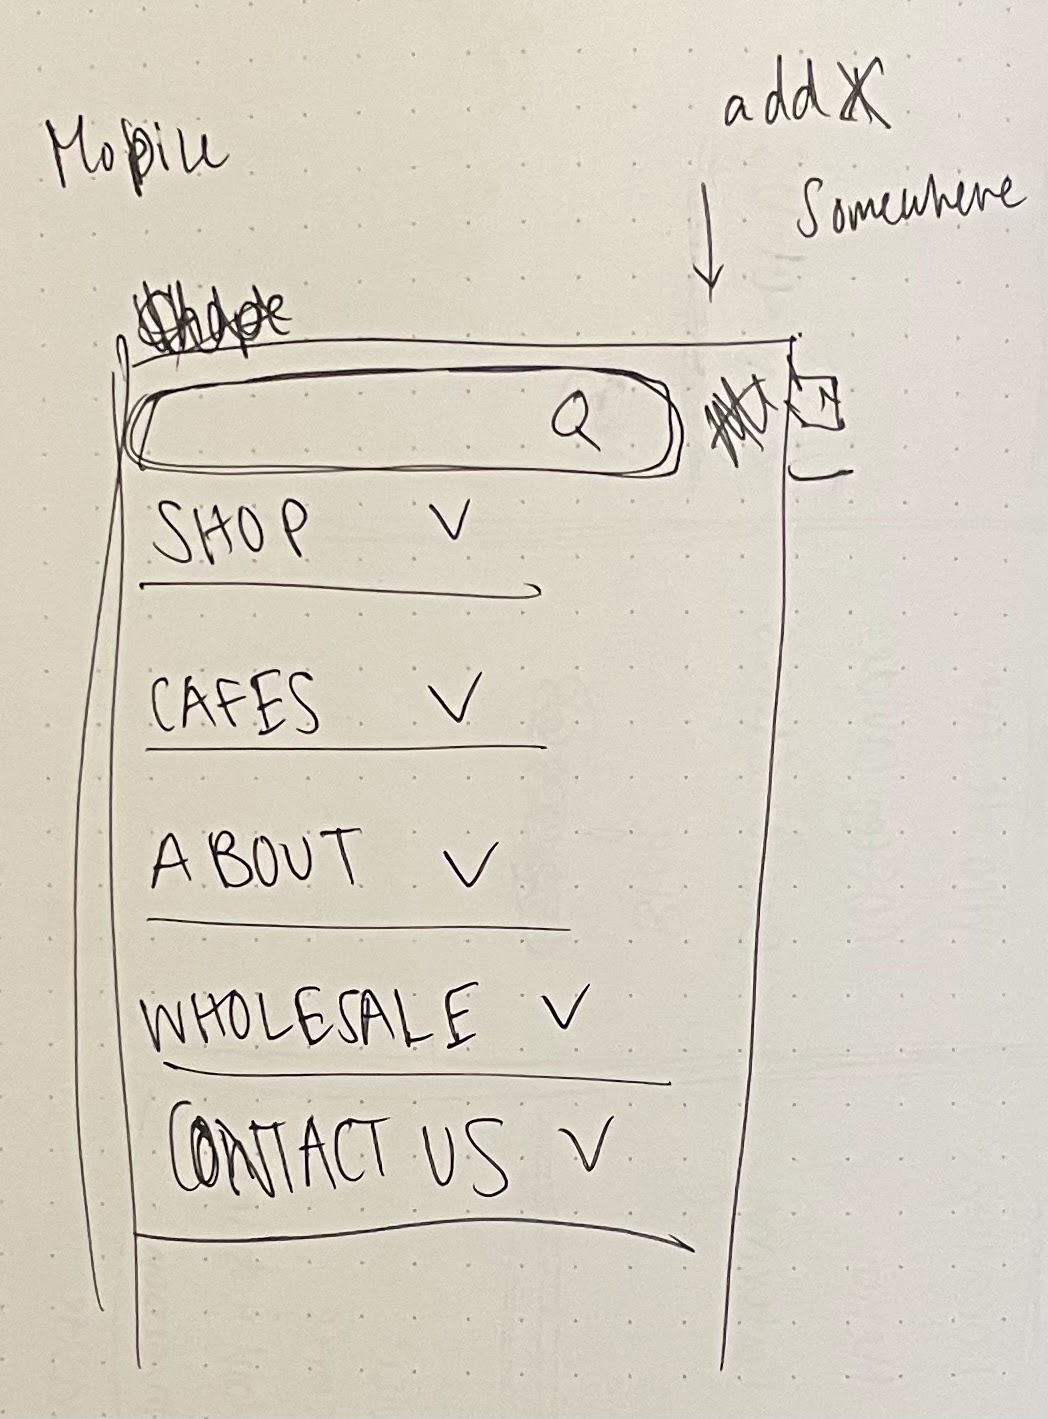 Mobile
add X
Somewhere
SHOP
CAFES
ABOUT
WHOLESALE
CONTACT US